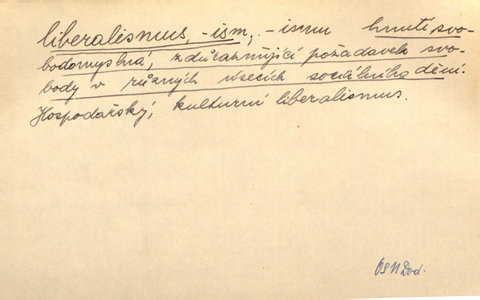 liberalismus, -ism, -ismu hnutí svo-
bodomyslná, zdůrazňující požadavek svo-
body v různých úsecích sociálního dění.
Hospodářský, kulturní liberalismus.
OSN Dod.